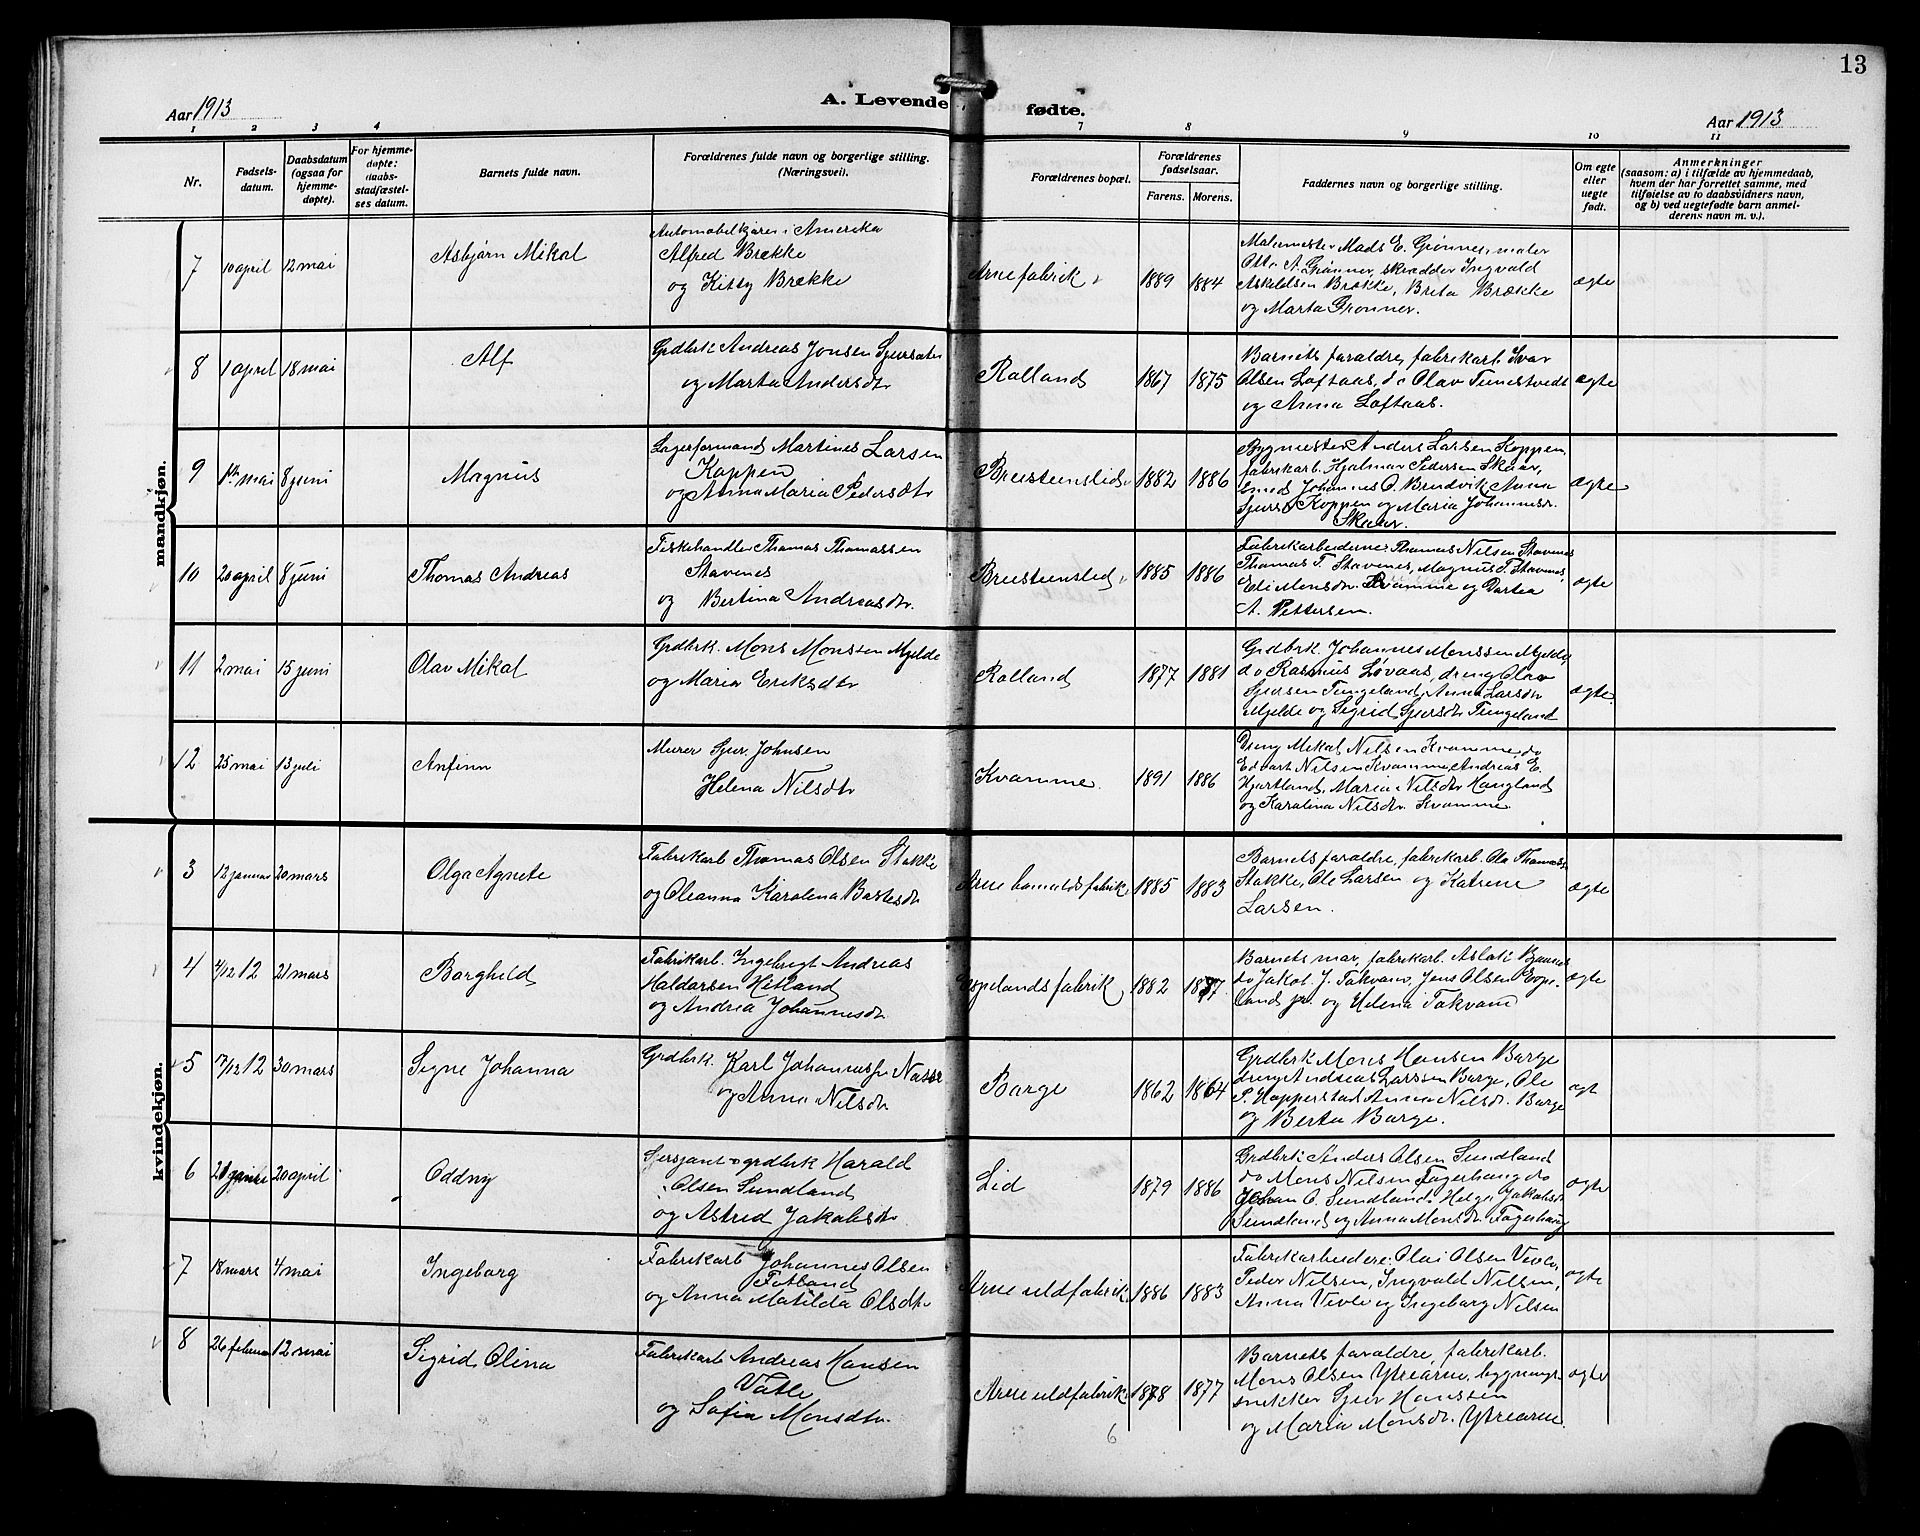 13
A. Levende fødte.
Aar 1913
Aar 1913
1 2 3 4 7 8 9 10 11
Nr.
Fødsels-
datum.
Daabsdatum
(ogsaa for
hjemme-
døpte).
For hjemme-
døpte:
daabs-
stadfæstel-
ses datum.
Barnets fulde navn.
Forældrenes fulde navn og borgerlige stilling.
(Næringsvei).
Forældrenes bopæl.
Forældrenes
fødselsaar.
Farens. Morens.
Faddernes navn og borgerlige stilling.
Om egte
eller
uegte
født.
Anmerkninger
(saasom: a) i tilfælde av hjemmedaab,
hvem der har forrettet samme, med
tilføielse av to daabsvidners navn,
og b) ved uegtefødte barn anmel-
derens navn m. v.).
mandkjøn.
7 10 april 12 mai Asbjørn Mikal
Automobilkjører i Amerika
Alfred Brække
og Kitty Brække
Arne fabrik 1889 1884
Malermester Mads E. Grønner, maler
Otto A. Grønner, skrædder Ingvald
Askildsen Brække, Brita Brække
og Marta Grønner.
ægte
8 1 april 18 mai Alf
Grdbrk Andreas Jonsen
og Marta Andersdtr
Rolland 1867 1875
Barnets forældre, fabrikarb. Ivar
Olsen Loftaas, do Olav Tunestvedt
og Anna Loftaas.
ægte
9 mai 8 juni Magnus
Lagerformand Martines Larsen
Koppen
og Anna Maria Pedersdtr
Breistenslid 1882 1886
Bygmester Anders Larsen Koppen,
fabrikarb. Hjalmar Pedersen Skaar,
smed Johannes O. Brudvik, Anna
Koppen og Maria Johannesdr.
Skaar.
ægte
10 20 april 8 juni Thomas Andreas
Fiskehandler Thomas Thomassen
Stavenes
og Bertina Andreasdtr.
Breistenslid 1885 1886
Fabrikarbeiderne Thomas Nilsen Stavenes
Thomas T. Stavenes, Magnus T. Stavenes,
Eli Monsdtr. Kvamme og Dortea
A. Pettersen.
ægte
11 2 mai 15 juni Olav Mikal
Grdbrk. Mons Monsen Mjelde
og Maria Eriksdtr
Rolland 1877 1881
Grdbrk. Johannes Monssen Mjelde
do Rasmus Løvaas, dreng Olav
Sjursen Tungeland, Anna Larsdtr
Mjelde og Sigrid Sjursdtr Tungeland
ægte
12 25 mai 13 juli Anfinn
Murer Sjur Johnsen
Helena Nilsdtr
Kvamme 1891 1886
Dreng Mikal Nilsen Kvamme, do
Edvart Nilsen Kvamme, Andreas E.
Hjortland, Maria Nilsdtr Haugland
og Karolina Nilsdtr. Kvamme
kvindekjøn.
3 12 januar 20 mars Olga Agnete
Fabrikarb Thomas Olsen Stokke
og Oleanna Karolina
Arne fabrik 1885 1883
Barnets forældre, fabrikarb. Ola Thomas
Stokke, Ole Larsen og Katrine
Larsen.
ægte
4 4/12 12 21 mars Borghild
Fabrikarb. Ingebrigt Andreas
Haldorsen Hetland
og Andrea Johannesdtr
Espelands fabrik 1882 1887
Barnets mor, fabrikarb. Aslak
do Jakob J. Takvam, Jens Olsen Espe-
land jr. og Helena Takvam
ægte
5 7/12 12 30 mars Signe Johanna
Grdbrk. Karl
og Anna Nilsdtr
Borge 1862 1864
Grdbrk Mons Hansen Borge
dreng Andreas Larssen Borge, Ole
P. Hopperstad Anna Nilsdtr. Borge
og Berta Borge.
egt
6 20 april Oddny
Sersjant og grdbrk Harald
Olsen Sundland
og Astrid Jakobsdtr
Lid 1879 1886
Grdbrk Anders Olsen Sundland
do Mons Nilsen Fagerhaug do
Johan O. Sundland, Helga Jakobsdtr
Sundland og Anna Monsdtr. Fagerhaug
ægte
7 18 mars 4 mai Ingeborg
Fabrikarb Johannes Olsen
Fotland
og Anna Matilda Olsdtr
Arne uldfabrik 1886 1883
Fabrikarbeidere: Olai Olsen
Peder Nilsen, Ingvald Nilsen,
Anna Vevle og Ingeborg Nilsen
ægte
8 26 februar 12 mai Sigrid Olina
Fabrikarb Andreas Hansen
Vatle
og Sofia Monsdtr.
Arne uldfabrik 1878 1877
Barnets forældre, fabrikarb.
Mons Olsen Ytrearne, bygnings-
snekker Sjur Hanssen
og Maria Monsdtr. Ytrearne
ægte
6